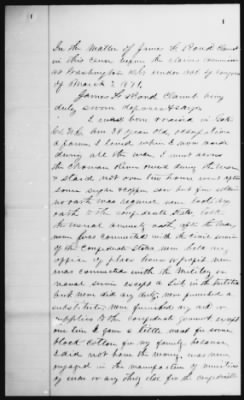 In the Matter of James F. Bond Claimt
in this case before the claims commission
at Washington City under act of Congress
of March 3 1871,
James F. Bond Claimt being
duly sworn deposes & says
I was born & raised in
Co. N.C. Am 38 years old, occupation
a farmer, I lived where I now reside
during all the war, I
the Chowan River once during the war
& staid not over two hours went after
some sugar coffee
no oath was required never took any
oath to the confederate states
the usual amnesty oath after the war,
never was connected with the civil service
of the Confederate States, never held any
office of place honor or profit never
was connected with the Military or
naval service except a bit in the Militia
but never did any duty, never furnished a
substitute, never furnished any
supplies to the Confederate Govmt except
one time I gave a little meat for some
black cotton for my family because
I did not have the money, was never
engaged in the manufacture of munitions
of war or any thing else for the confederate